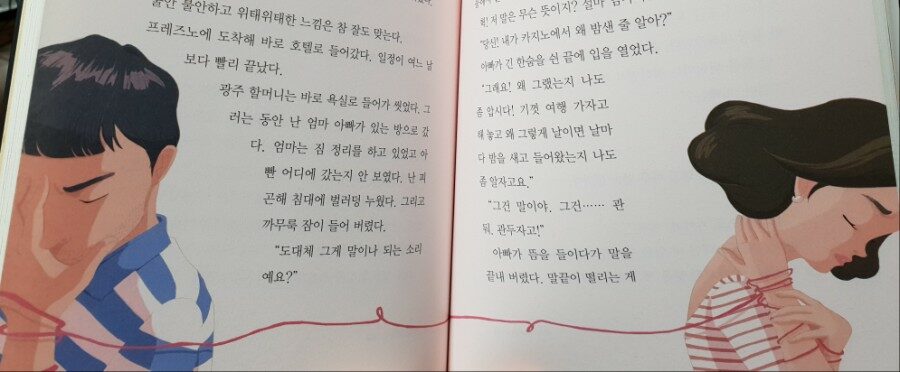 불안 불안하고 위태위태한 느낌은 참 잘도 맞는다.
프레즈노에 도착해 바로 호텔로 들어갔다. 일정이 여느 날
보다 빨리 끝났다.
광주 할머니는 바로 욕실로 들어가 씻었다. 그
러는 동안 난 엄마 아빠가 있는 방으로 갔
다. 엄마는 짐 정리를 하고 있었고 아
빤 어디에 갔는지 안 보였다. 난 피
곤해 침대에 벌러덩 누웠다. 그리고
까무룩 잠이 들어 버렸다.
“도대체 그게 말이나 되는 소리
예요?”
헉! 저 말은 무슨 뜻이지? 설마
“당신! 내가 카지노에서 왜 밤샌 줄 알아?”
아빠가 긴 한숨을 쉰 끝에 입을 열었다.
“그래요! 왜 그랬는지 나도
좀 압시다! 기껏 여행 가자고
해 놓고 왜 그렇게 날이면 날마
다 밤을 새고 들어왔는지 나도
좀 알자고요.”
“그건 말이야. 그건…… 관
둬. 관두자고!”
아빠가 뜸을 들이다가 말을
끝내 버렸다. 말끝이 떨리는 게